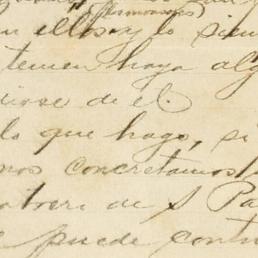 (hermanos)
ellos y lo sien
temen haya alg
dirse de el.
lo que hago, si
nos concretamos
de S Pa
puede cont